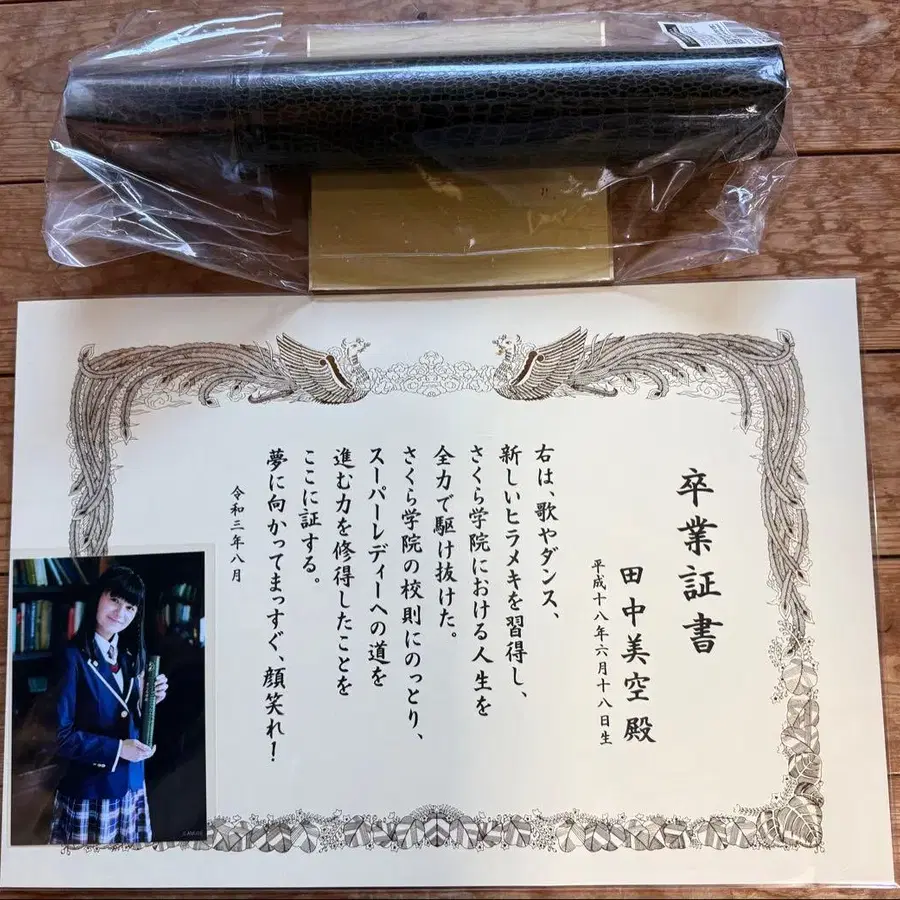 卒業証書
田中美空殿
平成十八年六月十八日生
右は、歌やダンス、
新しいヒラメキを習得し、
さくら学院における人生を
全力で駆け抜けた。
さくら学院の校則にのっとり、
スーパーレディーへの道を
進む力を修得したことを
ここに証する。
夢に向かってまっすぐ、顔笑れ!
令和三年八月